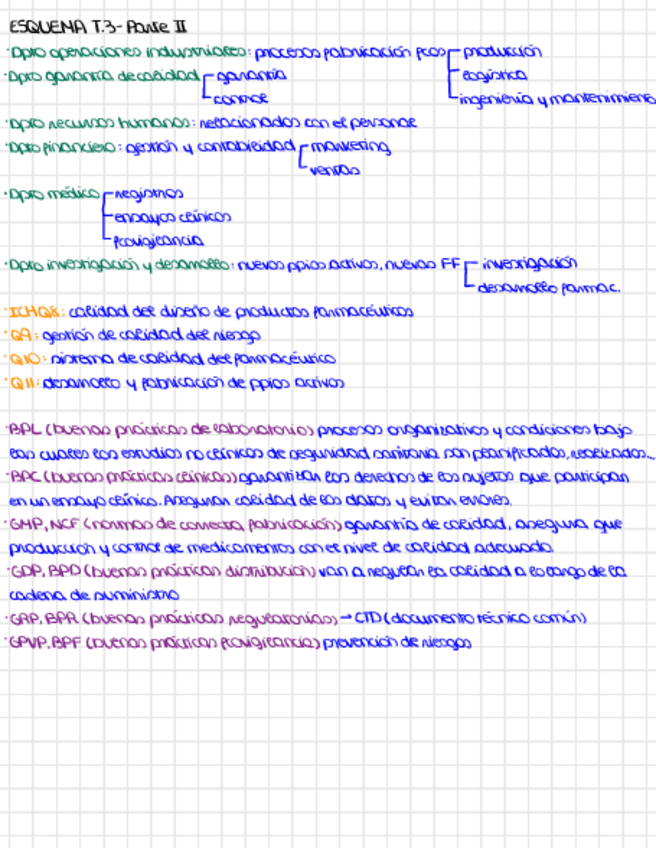 ESQUEMA T.3 - Parte II
·Dpto operaciones industriales: procesos fabricación fcos producción
·Dpto garantía de calidad garantía logística
control ingeniería y mantenimiento
·Dpto recursos humanos: relacionados con el personal
·Dpto financiero: gestión y contabilidad marketing
ventas
·Dpto médico registros
ensayos clínicos
fcovigilancia
·Dpto investigación y desarrollo: nuevos ppios activos, nuevas FF investigación
desarrollo farmac.
·ICHQ8: calidad del diseño de productos farmacéuticos
·Q9: gestión de calidad del riesgo
·Q10: sistema de calidad del farmacéutico
·Q11: desarrollo y fabricación de ppios activos
·BPL (buenas prácticas de laboratorio) procesos organizativos y condiciones bajo
las cuales los estudios no clínicos de seguridad sanitaria son planificados, realizados...
·BPC (buenas prácticas clínicas) garantizan los derechos de los sujetos que participan
en un ensayo clínico. Aseguran calidad de los datos y evitan errores.
·GMP, NCF (normas de correcta fabricación) garantía de calidad, asegura que
producción y control de medicamentos con el nivel de calidad adecuado
·GDP, BPD (buenas prácticas distribución) van a regular la calidad a lo largo de la
cadena de suministro
·GRP, BPR (buenas prácticas regulatorias) → CTD (documento técnico común)
·GPVP, BPF (buenas prácticas fcovigilancia) prevención de riesgos